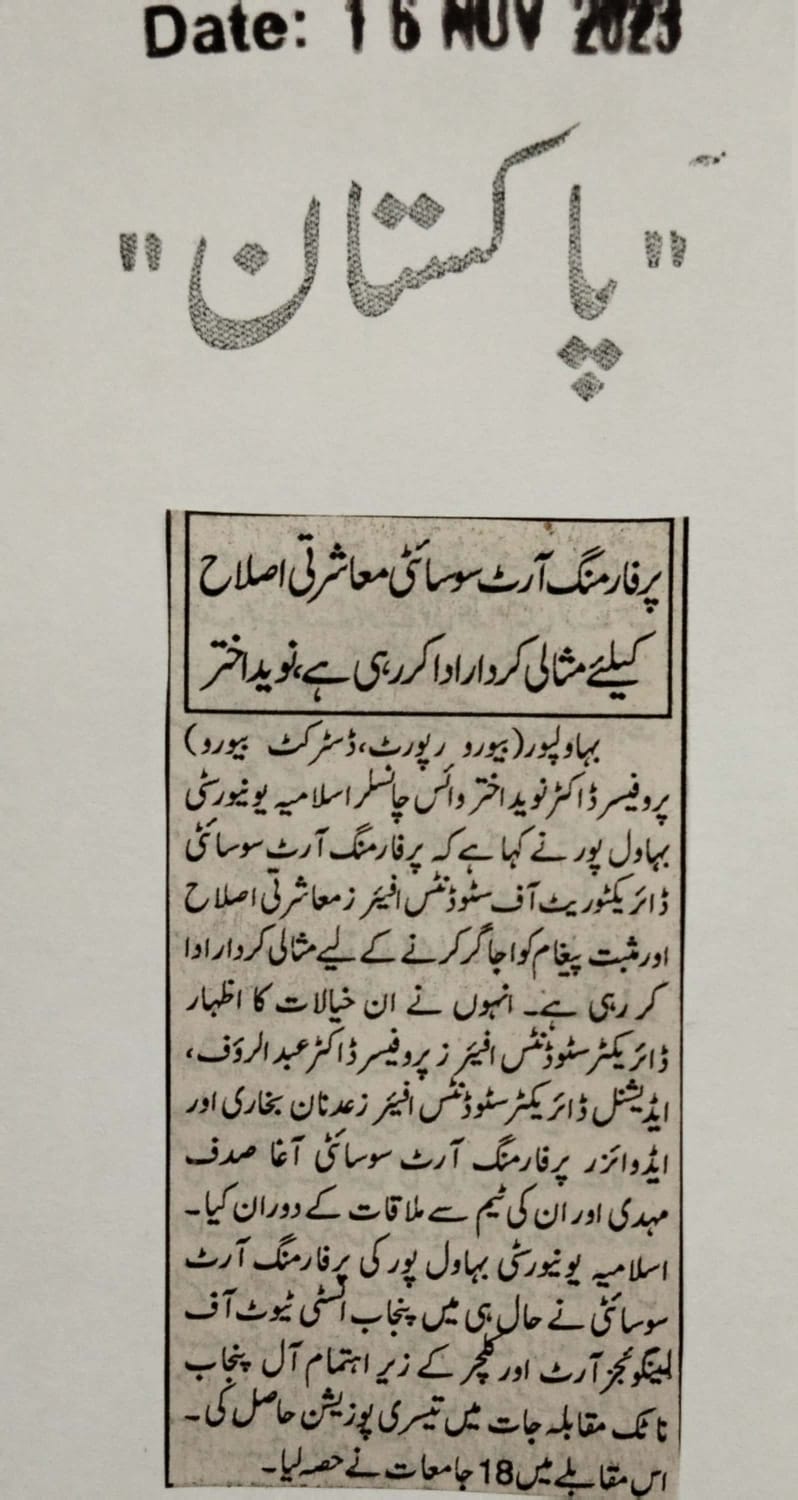 Date: 16 NOV 2023
"پاکستان"
پرفارمنگ آرٹ سوسائٹی معاشرتی اصلاح
کیلئے مثالی کردار ادا کر رہی ہے، نوید اختر
بہاولپور (بیورو رپورٹ، ڈسٹرکٹ بیورو)
پروفیسر ڈاکٹر نوید اختر وائس چانسلر اسلامیہ یونیورسٹی
بہاول پور نے کہا ہے کہ پرفارمنگ آرٹ سوسائٹی
ڈائریکٹوریٹ آف سٹوڈنٹس افیئرز معاشرتی اصلاح
اور مثبت پیغام کو اجاگر کرنے کے لیے مثالی کردار ادا
کر رہی ہے۔ انہوں نے ان خیالات کا اظہار
ڈائریکٹر سٹوڈنٹس افیئرز پروفیسر ڈاکٹر عبدالرؤف،
ایڈیشنل ڈائریکٹر سٹوڈنٹس افیئرز عدنان بخاری اور
ایڈوائزر پرفارمنگ آرٹ سوسائٹی آغا صدف
مہدی اور ان کی ٹیم سے ملاقات کے دوران کیا۔
اسلامیہ یونیورسٹی بہاول پور کی پرفارمنگ آرٹ
سوسائٹی نے حال ہی میں پنجاب انسٹی ٹیوٹ آف
لینگوئجز آرٹ اور کلچر کے زیر اہتمام آل پنجاب
ناٹک مقابلہ جات میں تیسری پوزیشن حاصل کی۔
اس مقابلے میں 18 جامعات نے حصہ لیا۔